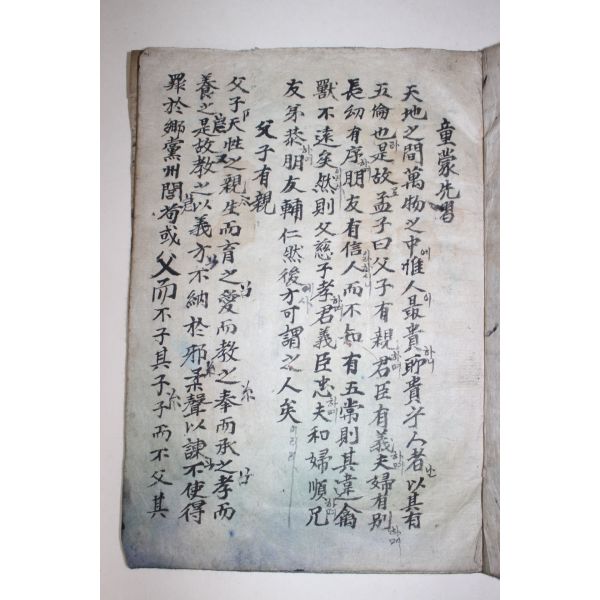 童蒙先習
天地之間萬物之中에惟人이最貴하니所貴乎人者난以其有
五倫也라是故로孟子曰父子有親하며君臣有義하며夫婦有別하며
長幼有序하며朋友有信이라하시니人而不知有五常則其違禽
獸不遠矣하리라然則父慈子孝하며君義臣忠하며夫和婦順하며兄
友弟恭하며朋友輔仁然後에사方可謂之人矣이리라
父子有親
父子天性之親生而育之愛而教之奉而承之孝而
養之是故教之以義方不納於邪柔聲以諫不使得
罪於鄕黨州閭苟或父而不子其子子而不父其